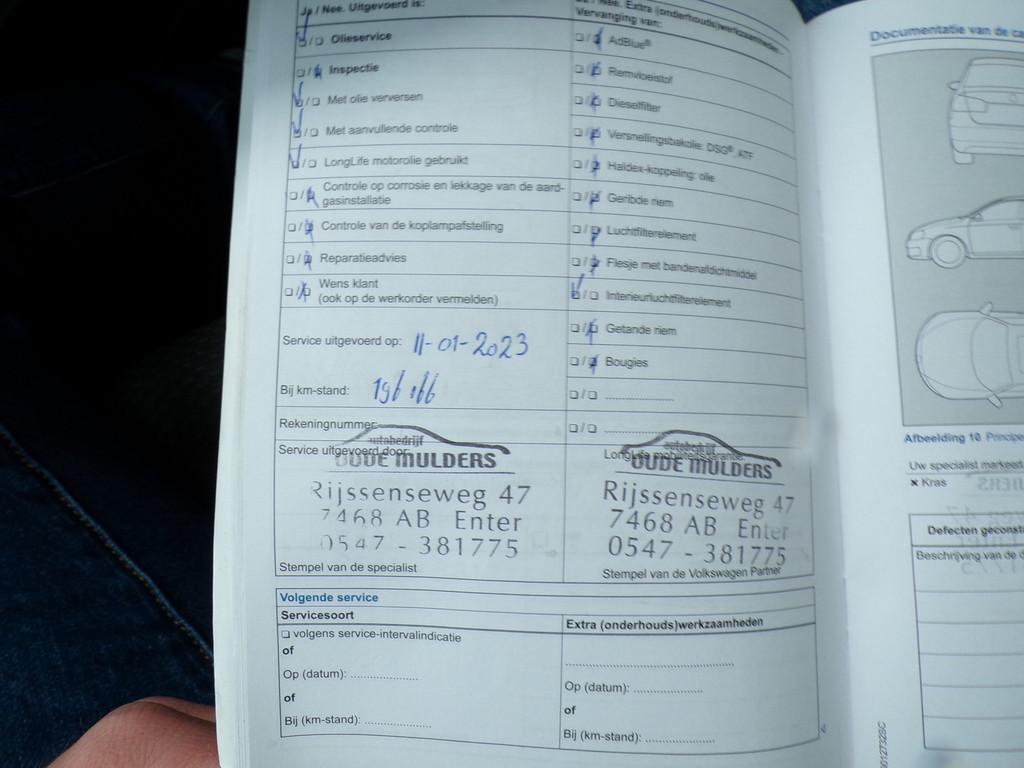 Ja / Nee. Uitgevoerd is:
Olieservice
Inspectie
Met olie verversen
Met aanvullende controle
LongLife motorolie gebruikt
Controle op corrosie en lekkage van de aard-
gasinstallatie
Controle van de koplampafstelling
Reparatieadvies
Wens klant
(ook op de werkorder vermelden)
Service uitgevoerd op: 11-01-2023
Bij km-stand: 196 166
Rekeningnummer:
Service uitgevoerd door:
autobedrijf
OUDE MULDERS
Rijssenseweg 47
7468 AB Enter
0547 - 381775
Stempel van de specialist
Nee. Extra (onderhouds)werkzaamheden.
Vervanging van:
AdBlue®
Remvloeistof
Dieselfilter
Versnellingsbakolie: DSG®, ATF
Haldex-koppeling: olie
Geribde riem
Luchtfilterelement
Flesje met bandenafdichtmiddel
Interieurluchtfilterelement
Getande riem
Bougies
LongLife mobiliteitsgarantie:
autobedrijf
OUDE MULDERS
Rijssenseweg 47
7468 AB Enter
0547 - 381775
Stempel van de Volkswagen Partner
Volgende service
Servicesoort
volgens service-intervalindicatie
of
Op (datum): ....................
of
Bij (km-stand): ....................
Extra (onderhouds)werkzaamheden
Op (datum): ....................
of
Bij (km-stand): ....................
Documentatie van de ca
Afbeelding 10 Principe
Uw specialist markeert
× Kras
Defecten geconst
Beschrijving van de d